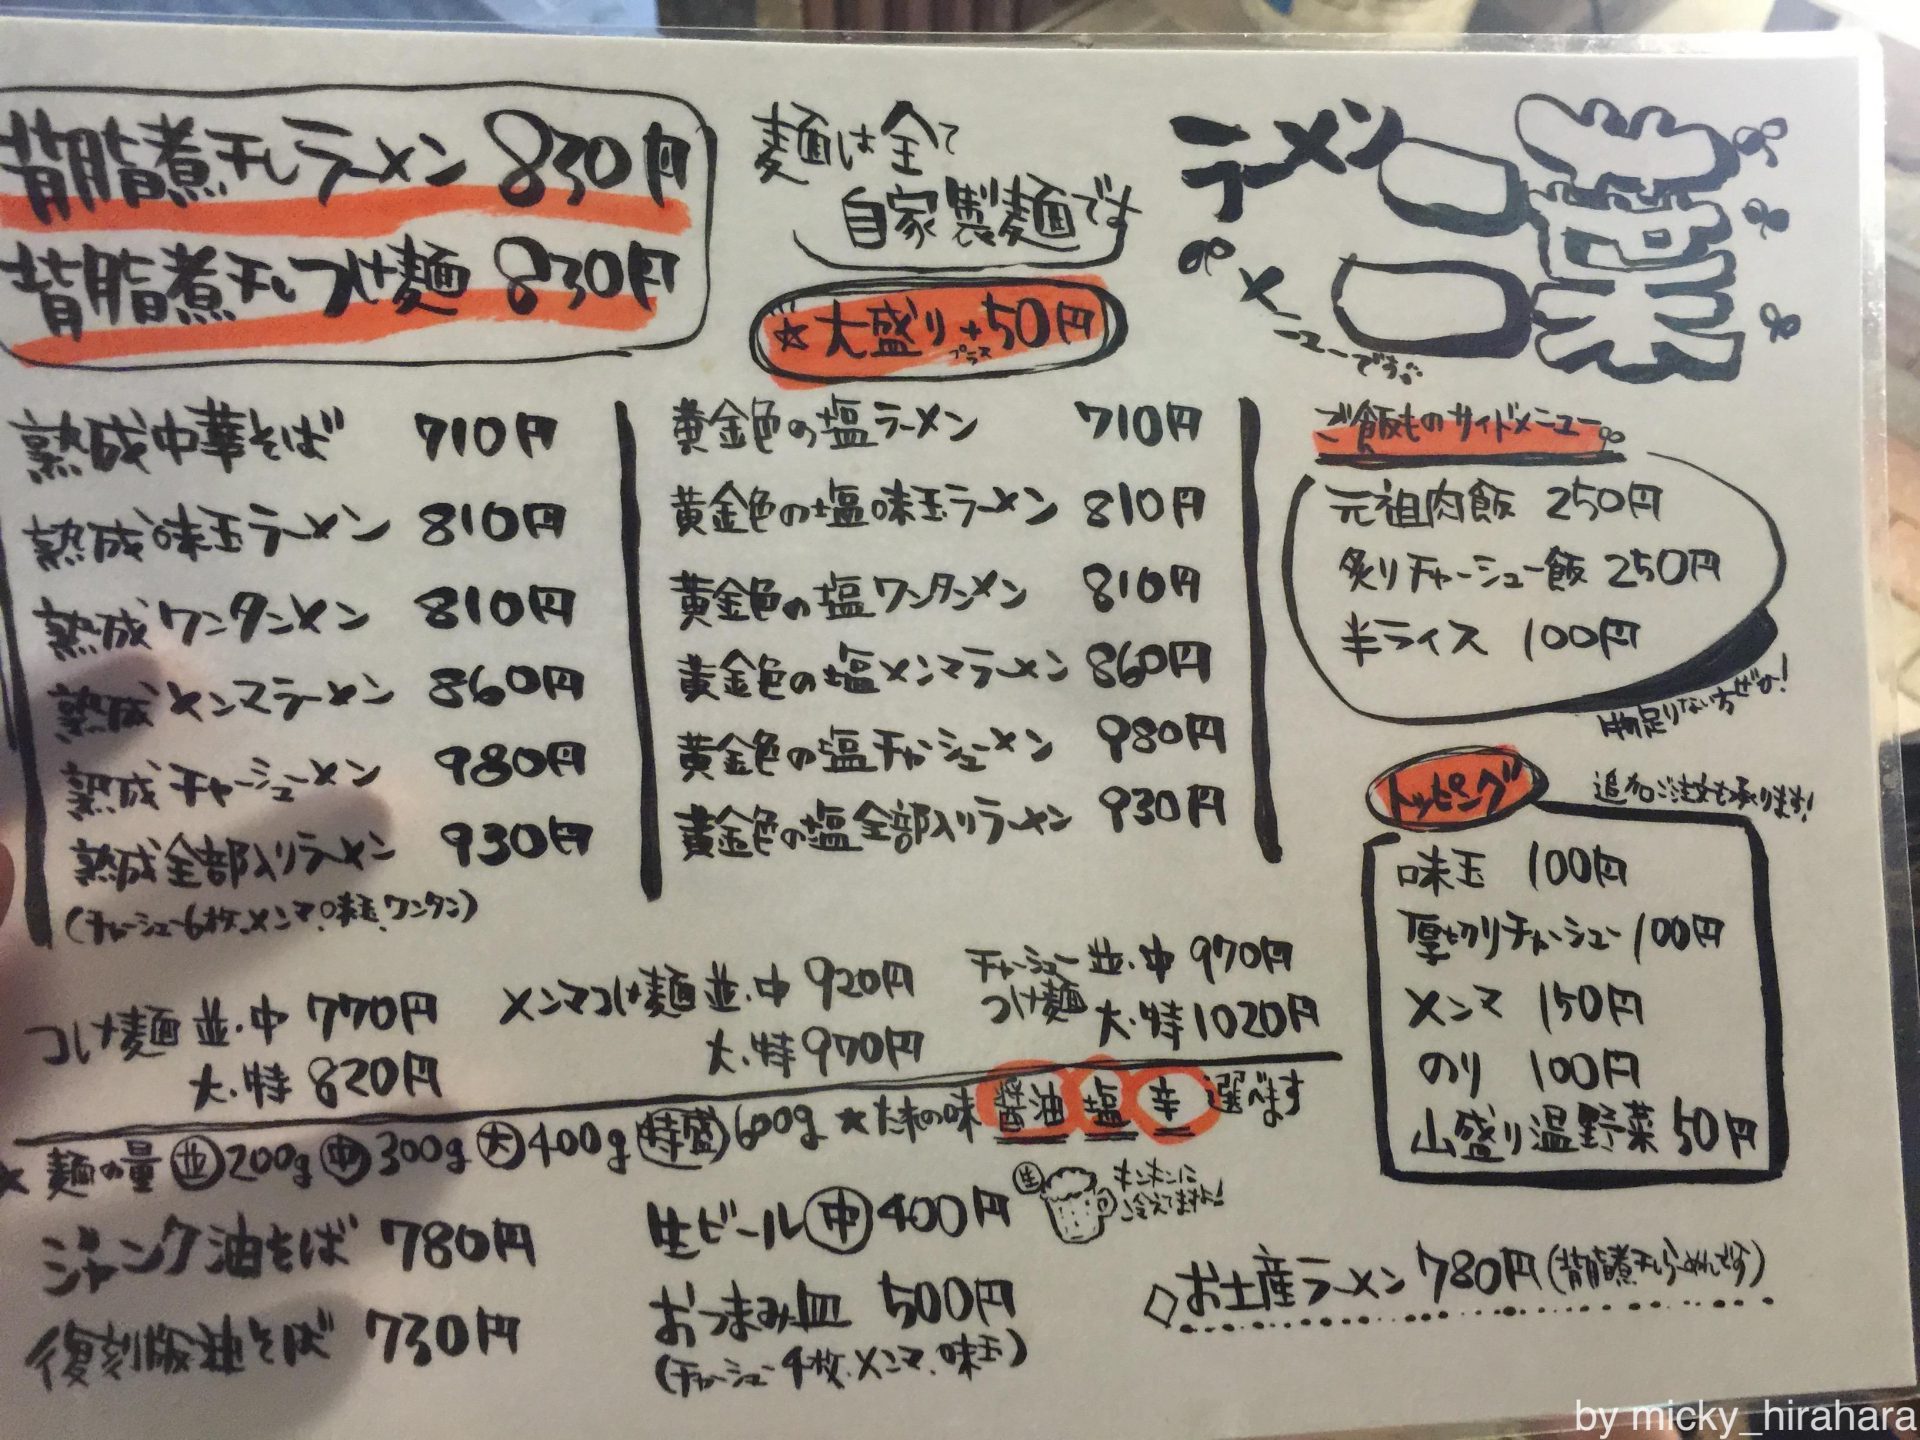 背脂煮干しラーメン 830円
背脂煮干しつけ麺 830円
麺は全て
自家製麺です
☆大盛り+50円
プラス
ラーメン
二代目
メニューです
熟成中華そば 710円
熟成味玉ラーメン 810円
熟成ワンタンメン 810円
熟成メンマラーメン 860円
熟成チャーシューメン 980円
熟成全部入りラーメン 930円
(チャーシュー6枚、メンマ、味玉、ワンタン)
黄金色の塩ラーメン 710円
黄金色の塩味玉ラーメン 810円
黄金色の塩ワンタンメン 810円
黄金色の塩メンマラーメン 860円
黄金色の塩チャーシューメン 980円
黄金色の塩全部入りラーメン 930円
ご飯ものサイドメニュー
元祖肉飯 250円
炙りチャーシュー飯 250円
半ライス 100円
物足りない方ぜひ!
トッピング
追加ご注文も承ります!
味玉 100円
厚切りチャーシュー 100円
メンマ 150円
のり 100円
山盛り温野菜 50円
つけ麺 並・中 770円
大・特 820円
メンマつけ麺 並・中 920円
大・特 970円
チャーシューつけ麺 並・中 970円
大・特 1020円
★麺の量 並200g 中300g 大400g 特盛600g ★たれの味 醤油 塩 辛 選べます
ジャンク油そば 780円
復刻版油そば 730円
生ビール 中 400円
生
キンキンに
冷えてますよ!
おつまみ皿 500円
(チャーシュー4枚、メンマ、味玉)
◇お土産ラーメン 780円(背脂煮干しらーめんです)
by micky_hirahara